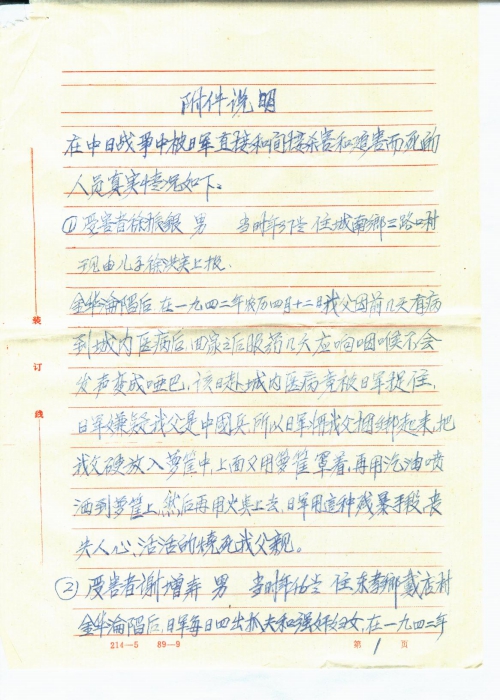 附件说明
在中日战争中被日军直接和间接杀害和迫害而死的
人员真实情况如下:
①受害者徐振银 男 当时年57岁 住城南乡三路口村
现由儿子徐洪类上报.
金华沦陷后在一九四二年农历四月十二日我父因前几天有病
到城内医病后,回家之后服药几天应响咽喉不会
发声变成哑巴,该日赴城内医病竟被日军捉住,
日军嫌疑我父是中國兵,所以日军将我父捆绑起来,把
我父硬放入箩筐中,上面又用箩筐罩着,再用汽油喷
洒到箩筐上,然后再用火点上去,日军用这种残暴手段,丧
失人心、活活的烧死我父親。
②受害者谢增寿 男 当时年46岁 住东孝鄉戴店村
金华淪陷后,日军每日四出抓夫和强奸妇女,在一九四二年
装
订
线
214—5 89—9
第1页